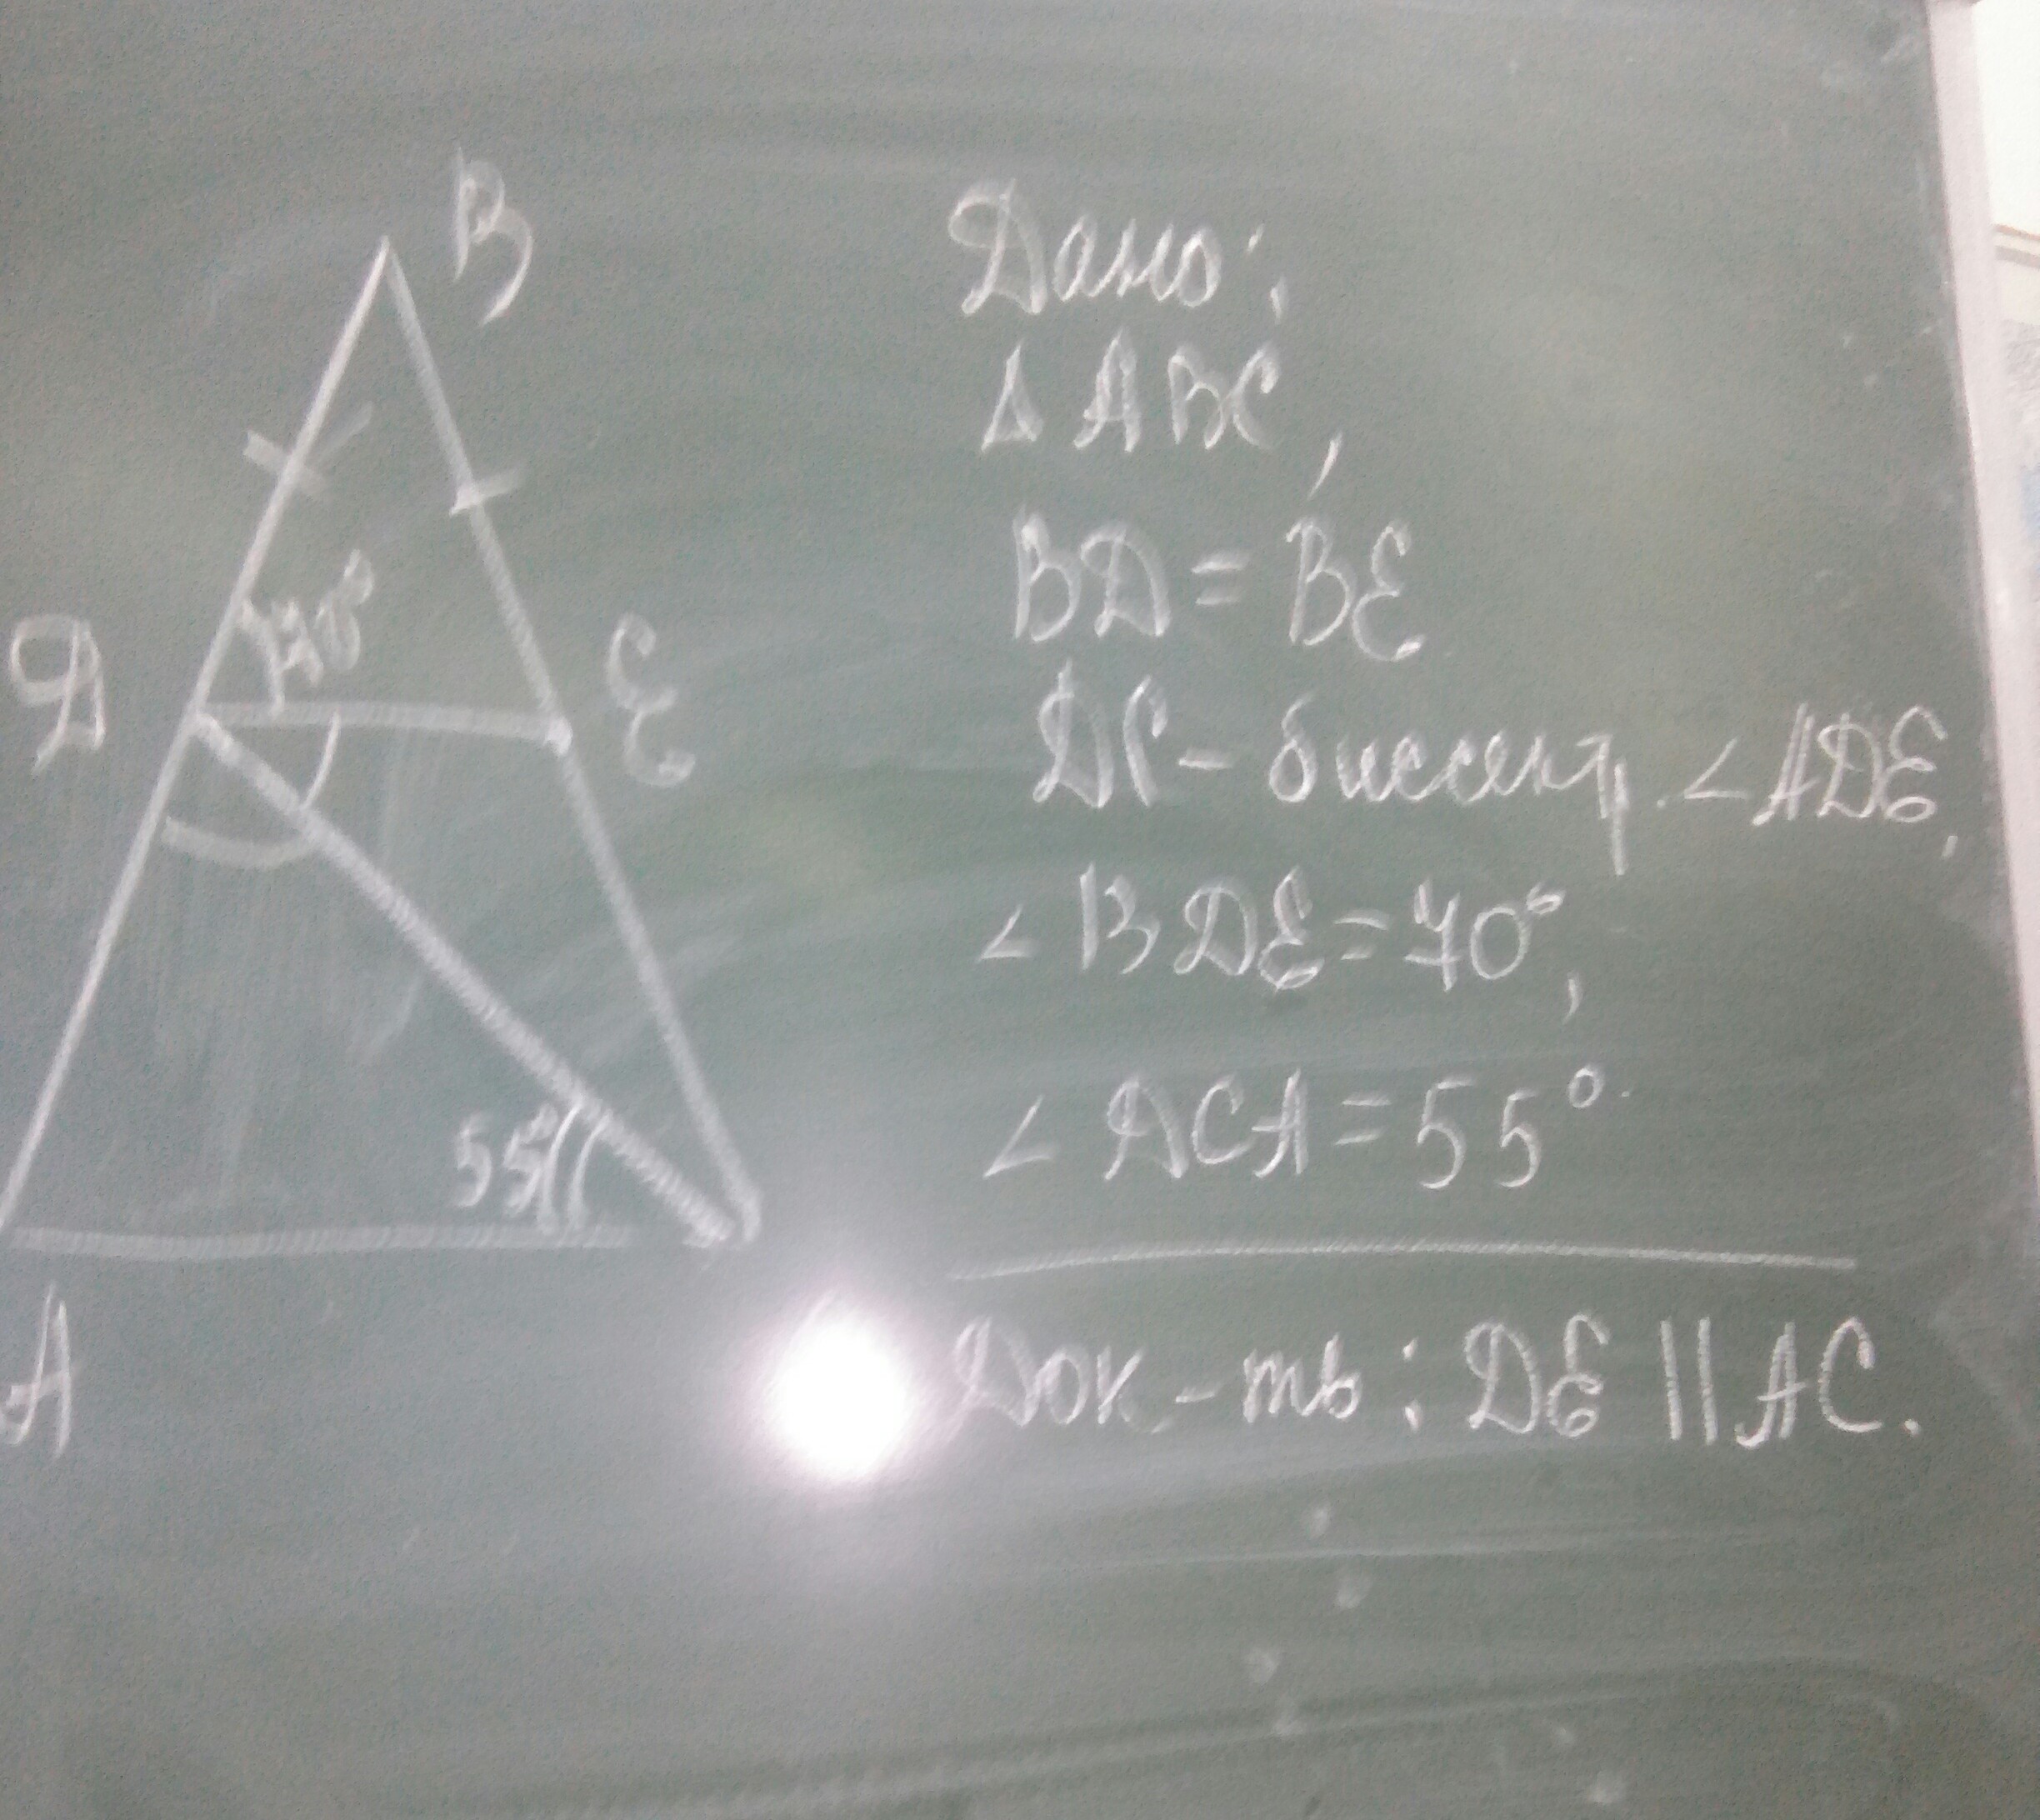 B
70°
D
E
55°
A
Дано:
Δ ABC,
BD = BE
DC - биссектр. ∠ADE,
∠ BDE = 70°,
∠ DCA = 55°.
Док-ть: DE || AC.